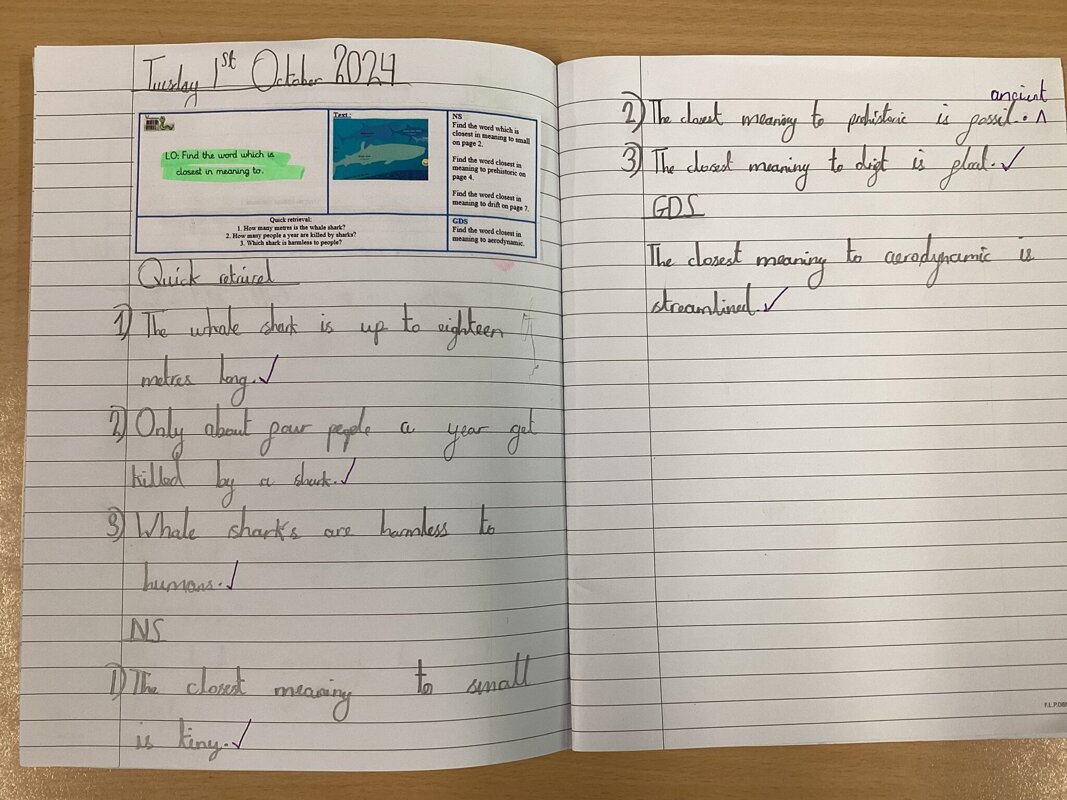 Tuesday 1st October 2024
LO: Find the word which is
closest in meaning to.
Text:
NS
Find the word which is
closest in meaning to small
on page 2.
Find the word closest in
meaning to prehistoric on
page 4.
Find the word closest in
meaning to drift on page 7.
Quick retrieval:
1. How many metres is the whale shark?
2. How many people a year are killed by sharks?
3. Which shark is harmless to people?
GDS
Find the word closest in
meaning to aerodynamic.
Quick
1) The whale shark is up to eighteen
metres long.
2) Only about four people a year get
killed by a shark.
3) Whale sharks are harmless to
humans.
NS
1) The closest meaning to small
is tiny.
ancient
2) The closest meaning to prehistoric is fossil.
3) The closest meaning to drift is float.
GDS
The closest meaning to aerodynamic is
streamlined.